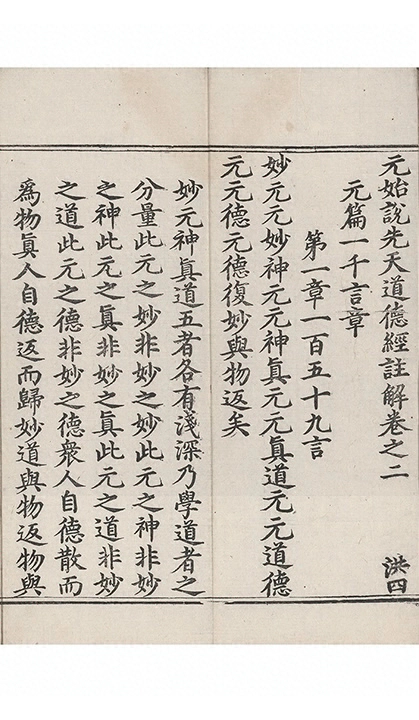 元始說先天道德經註解卷之二 洪四
元篇一千言章
第一章一百五十九言
妙元元妙神元元神眞元元眞道元元道德
元元德元德復妙與物返矣
妙元神眞道五者各有淺深乃學道者之
分量此元之妙非妙之妙此元之神非妙
之神此元之眞非妙之眞此元之道非妙
之道此元之德非妙之德衆人自德散而
爲物眞人自德返而歸妙道與物返物與